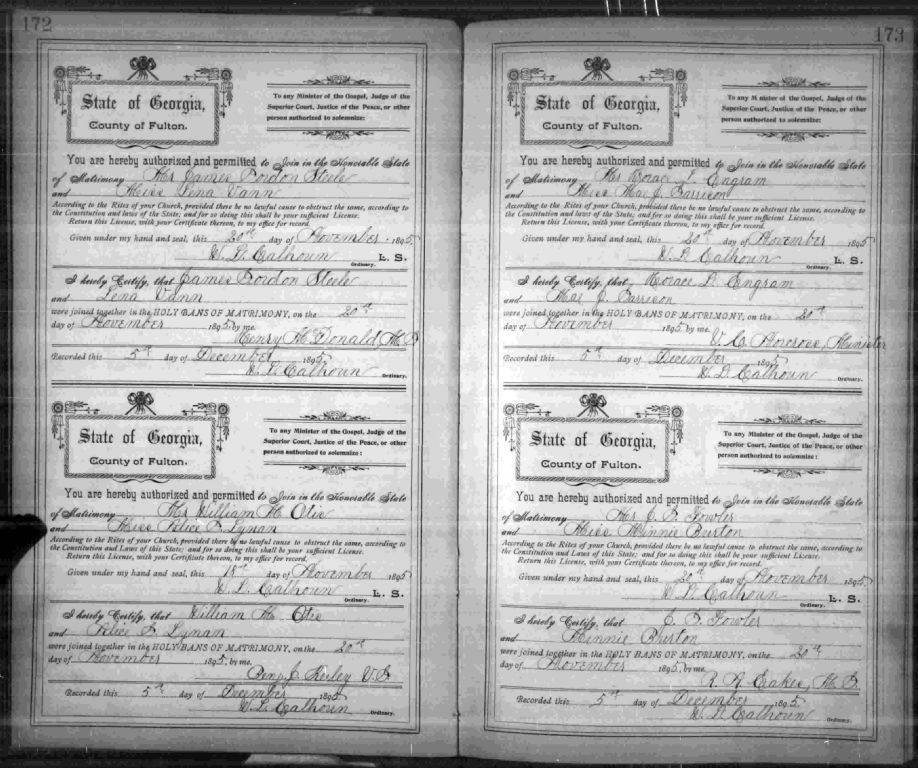 172
State of Georgia,
County of Fulton.
To any Minister of the Gospel, Judge of the
Superior Court, Justice of the Peace, or other
person authorized to solemnize:
You are hereby authorized and permitted to Join in the Honorable State
of Matrimony Mr James Gordon Steele
and Miss Lena Vann
According to the Rites of your Church, provided there be no lawful cause to obstruct the same, according to the
Constitution and laws of the State; and for so doing this shall be your sufficient License.
Return this License, with your Certificate thereon, to my office for record.
Given under my hand and seal, this 20th day of November 1895
W. L. Calhoun L. S.
Ordinary.
I hereby Certify, that James Gordon Steele
and Lena Vann
were joined together in the HOLY BANS OF MATRIMONY, on the 20th
day of November 1895 by me.
Henry McDonald M. G
Recorded this 5th day of December 1895
W. L. Calhoun
Ordinary.
State of Georgia,
County of Fulton.
To any Minister of the Gospel, Judge of the
Superior Court, Justice of the Peace, or other
person authorized to solemnize:
You are hereby authorized and permitted to Join in the Honorable State
of Matrimony Mr William M. Otis
and Miss Alice F. Lynan
According to the Rites of your Church, provided there be no lawful cause to obstruct the same, according to
the Constitution and Laws of this State; and for so doing this shall be your sufficient License.
Return this License, with your Certificate thereon, to my office for record.
Given under my hand and seal, this day of November 1895
W. L. Calhoun L. S.
Ordinary.
I hereby Certify, that William M. Otis
and Alice F. Lynan
were joined together in the HOLY BANS OF MATRIMONY, on the 20th
day of November 1895, by me.
Benj. J. Keiley V. G.
Recorded this 5th day of December 1895
W. L. Calhoun
Ordinary.
173
State of Georgia,
County of Fulton.
To any Minister of the Gospel, Judge of the
Superior Court, Justice of the Peace, or other
person authorized to solemnize:
You are hereby authorized and permitted to Join in the Honorable State
of Matrimony Mr Horace L. Engram
and Miss Mae J. Garrison
According to the Rites of your Church, provided there be no lawful cause to obstruct the same, according to
the Constitution and laws of the State; and for so doing this shall be your sufficient License.
Return this License, with your Certificate thereon, to my office for record.
Given under my hand and seal, this 20th day of November 1895
W. L. Calhoun L. S.
Ordinary.
I hereby Certify, that Horace L. Engram
and Mae J. Garrison
were joined together in the HOLY BANS OF MATRIMONY, on the 20th
day of November 1895 by me.
V. C. Norcross, Minister
Recorded this 5th day of December 1895
W. L. Calhoun
Ordinary.
State of Georgia,
County of Fulton.
To any Minister of the Gospel, Judge of the
Superior Court, Justice of the Peace, or other
person authorized to solemnize:
You are hereby authorized and permitted to Join in the Honorable State
of Matrimony Mr J. F. Fowler
and Miss Minnie Burton
According to the Rites of your Church, provided there be no lawful cause to obstruct the same, according to
the Constitution and Laws of this State; and for so doing this shall be your sufficient License.
Return this License, with your Certificate thereon, to my office for record.
Given under my hand and seal, this 20th day of November 1895
W. L. Calhoun L. S.
Ordinary.
I hereby Certify, that J. F. Fowler
and Minnie Burton
were joined together in the HOLY BANS OF MATRIMONY, on the 20th
day of November 1895, by me.
R. R. Eakes, M. G.
Recorded this 5th day of December 1895
W. L. Calhoun
Ordinary.